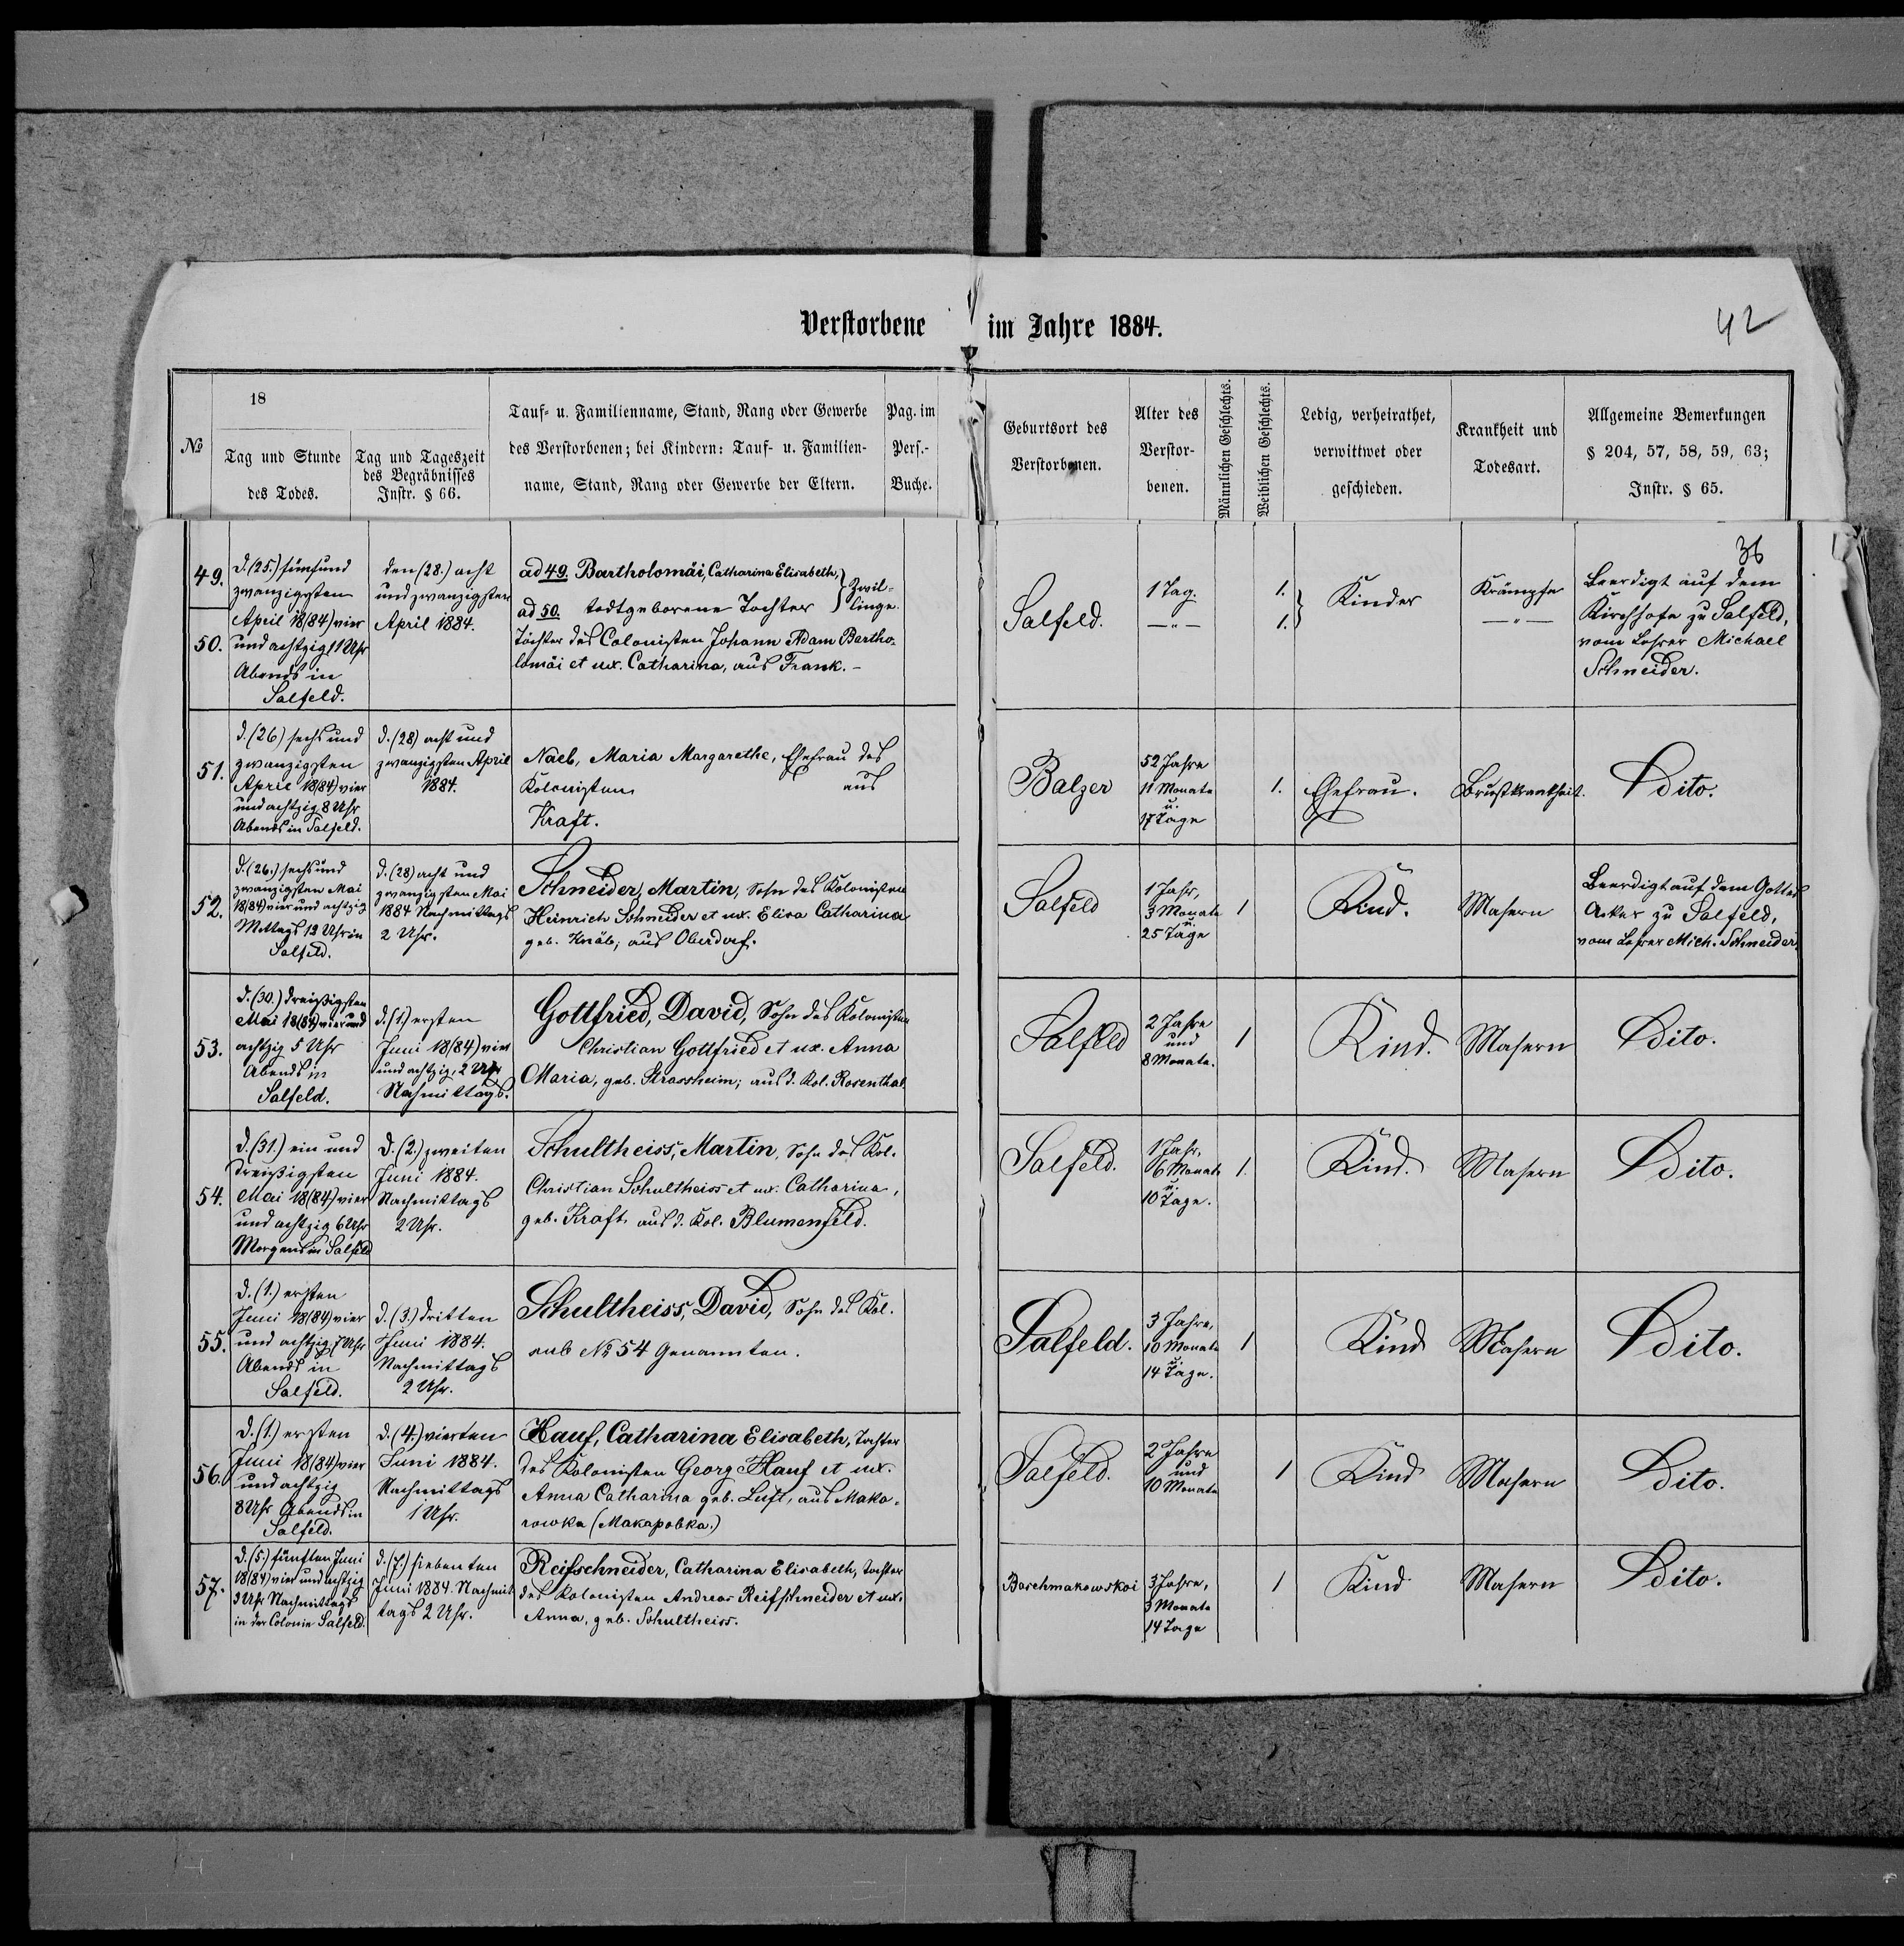 Verstorbene im Jahre 1884.
42
№
18
Tag und Stunde
des Todes.
Tag und Tageszeit
des Begräbnisses
Instr. § 66.
Tauf- u. Familienname, Stand, Rang oder Gewerbe
des Verstorbenen; bei Kindern: Tauf- u. Familien-
name, Stand, Rang oder Gewerbe der Eltern.
Pag. im
Pers.-
Buche.
Geburtsort des
Verstorbenen.
Alter des
Verstor-
benen.
Männlichen Geschlechts.
Weiblichen Geschlechts.
Ledig, verheirathet,
verwittwet oder
geschieden.
Krankheit und
Todesart.
Allgemeine Bemerkungen
§ 204, 57, 58, 59, 63;
Instr. § 65.
36
49.
50.
d. (25.) fünfund
zwanzigsten
April 18(84) vier
und achtzig 11 Uhr
Abends in
Salfeld.
den (28.) acht
und zwanzigsten
April 1884.
ad 49. Bartholomäi, Catharina Elisabeth,
ad 50. todtgeborene Tochter
} Zwil-
linge.
Töchter des Colonisten Johann Adam Bartho-
lomäi et ux. Catharina, aus Frank. –
Salfeld.
1 Tag.
— " —
1.
1.
} Kinder
Krämpfe
— " —
Beerdigt auf dem
Kirchhofe zu Salfeld,
vom Lehrer Michael
Schneider.
51.
d. (26) sechs und
zwanzigsten
April 18(84) vier
und achtzig 8 Uhr
Abends in Salfeld.
d. (28) acht und
zwanzigsten April
1884.
Naeb, Maria Margarethe, Ehefrau des
Kolonisten aus
Kraft.
Balzer
52 Jahre
11 Monate
u.
17 Tage
1.
Ehefrau.
Brustkrankheit.
Dito.
52.
d. (26.) sechs und
zwanzigsten Mai
18(84) vier und achtzig
Mittags 12 Uhr in
Salfeld.
d. (28) acht und
zwanzigsten Mai
1884 Nachmittags
2 Uhr.
Schneider, Martin, Sohn des Kolonisten
Heinrich Schneider et ux. Elisa Catharina
geb. Knäb; aus Oberdorf.
Salfeld
1 Jahr,
3 Monate
u.
25 Tage
1
Kind.
Masern
Beerdigt auf dem Gottes
Acker zu Salfeld,
vom Lehrer Mich. Schneider.
53.
d. (30.) dreißigsten
Mai 18(84) vier und
achtzig 5 Uhr
Abends in
Salfeld.
d. (1.) ersten
Juni 18(84) vier
und achtzig, 2 Uhr
Nachmittags.
Gottfried, David, Sohn des Kolonisten
Christian Gottfried et ux. Anna
Maria, geb. Strassheim; aus d. Kol. Rosenthal.
Salfeld
2 Jahre
und
8 Monate.
1
Kind.
Masern
Dito.
54.
d. (31.) ein und
dreißigsten
Mai 18(84) vier
und achtzig 6 Uhr
Morgens in Salfeld
d. (2.) zweiten
Juni 1884.
Nachmittags
2 Uhr.
Schultheiss, Martin, Sohn des Kol.
Christian Schultheiss et ux. Catharina,
geb. Kraft aus d. Kol. Blumenfeld.
Salfeld.
1 Jahr,
6 Monate
u.
10 Tage.
1.
Kind.
Masern
Dito.
55.
d. (1.) ersten
Juni 18(84) vier
und achtzig, 7 Uhr
Abends in
Salfeld.
d. (3.) dritten
Juni 1884.
Nachmittags
2 Uhr.
Schultheiss, David, Sohn des Kol.
sub № 54 Genannten.
Salfeld.
3 Jahre,
10 Monate
u.
14 Tage.
1
Kind
Masern
Dito.
56.
d. (1.) ersten
Juni 18(84) vier
und achtzig
8 Uhr Abends in
Salfeld.
d. (4.) vierten
Juni 1884.
Nachmittags
1 Uhr.
Hauf, Catharina Elisabeth, Tochter
des Kolonisten Georg Hauf et ux.
Anna Catharina geb. Luft, aus Maka-
rowka (Макаровка.)
Salfeld.
2 Jahre
und
10 Monate
1
Kind
Masern
Dito.
57.
d. (5.) fünften Juni
18(84) vier und achtzig
3 Uhr Nachmittags
in der Colonie Salfeld.
d. (7.) siebenten
Juni 1884. Nachmit
tags 2 Uhr.
Reifschneider, Catharina Elisabeth, Tochter
des Kolonisten Andreas Reifschneider et ux.
Anna, geb. Schultheiss.
Baschmakowskoi
3 Jahre,
3 Monate
14 Tage
1
Kind
Masern
Dito.